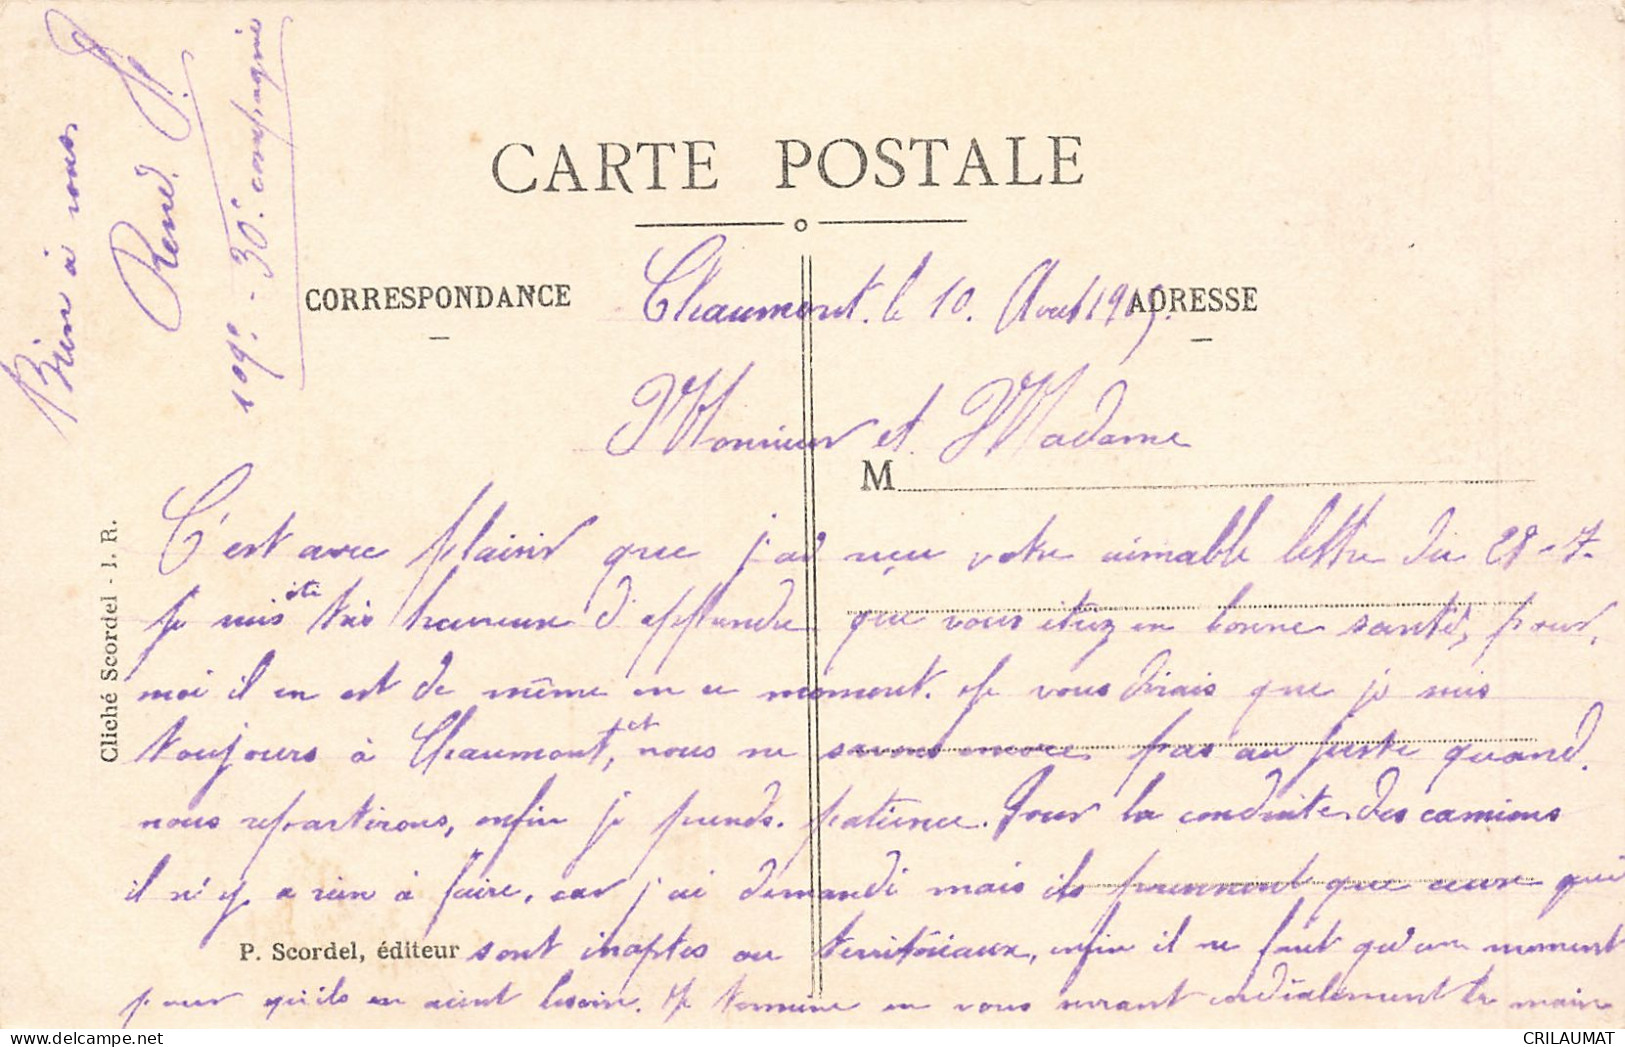 CARTE POSTALE
CORRESPONDANCE
ADRESSE
Chaumont. le 10. Août 1915.
Monsieur et Madame
M
C'est avec plaisir que j'ai reçu votre aimable lettre du 28-7.
Je suis été très heureux d'apprendre que vous étiez en bonne santé, pour,
moi il en est de même en ce moment. Je vous dirais que je suis
toujours à Chaumont, et nous ne savons encore pas au juste quand.
nous repartirons, enfin je prends. patience. Pour la conduite des camions
il n'y a rien à faire, car j'ai demandé mais ils prennent que ceux qui
sont inaptes ou territoriaux, enfin il ne faut qu'un moment
pour qu'ils en aient besoin. Je termine en vous serrant cordialement la main
Bien à vous
René
109e - 30e compagnie
Cliché Scordel - I. R.
P. Scordel, éditeur
CRILAUMAT